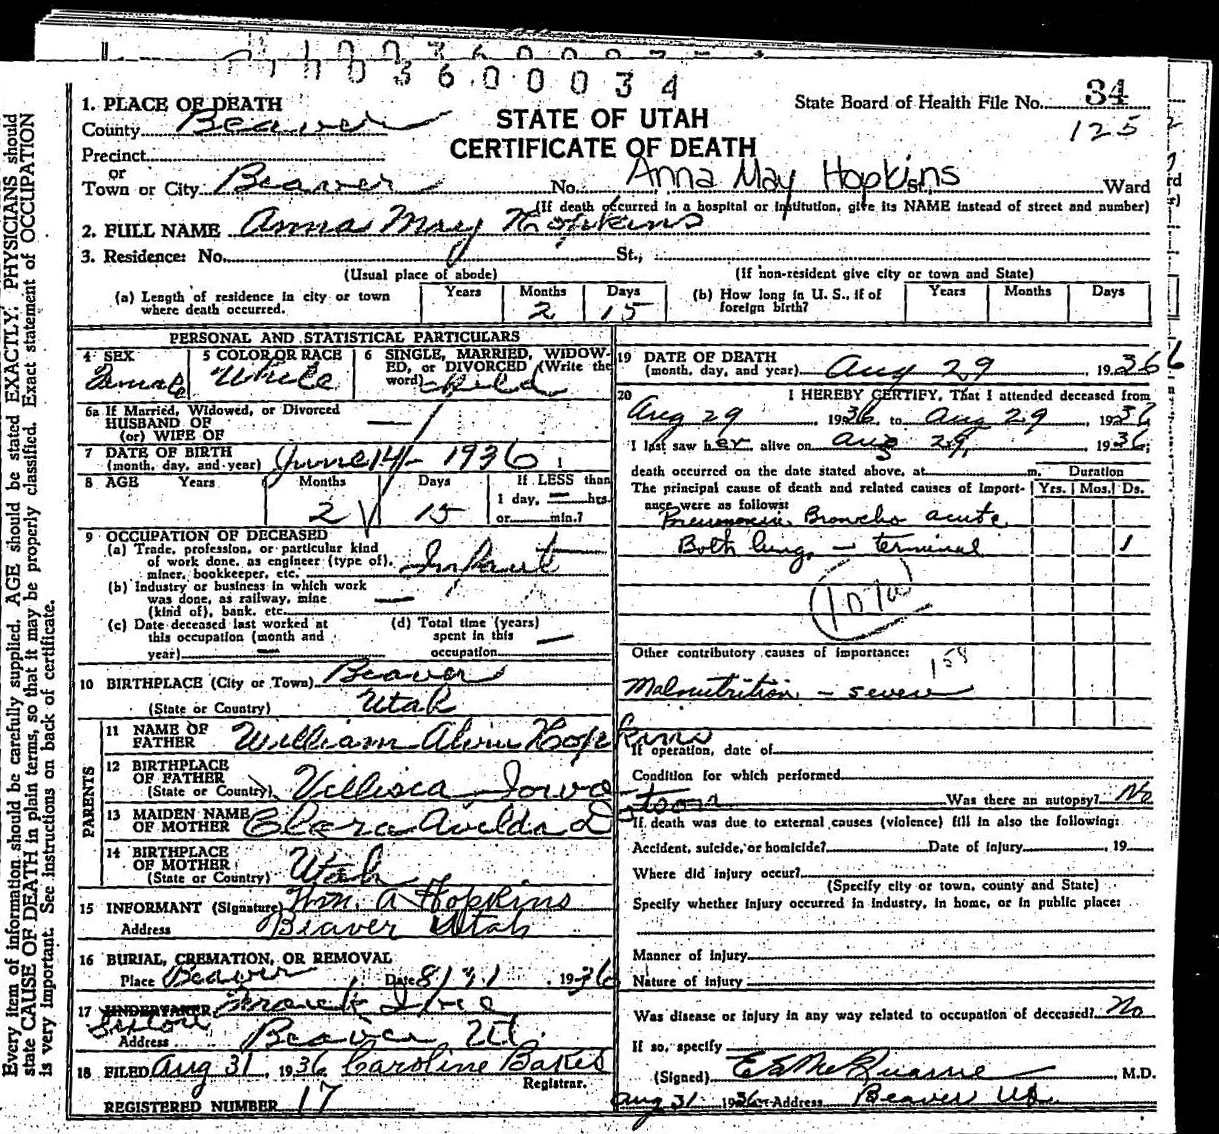 03600034
1. PLACE OF DEATH
County Beaver
STATE OF UTAH
CERTIFICATE OF DEATH
State Board of Health File No. 34
125
Precinct
or
Town or City Beaver No. Anna May Hopkins St. Ward
(If death occurred in a hospital or institution, give its NAME instead of street and number)
2. FULL NAME Anna May Hopkins
3. Residence: No. St.,
(Usual place of abode) (If non-resident give city or town and State)
(a) Length of residence in city or town where death occurred. Years Months 2 Days 15
(b) How long in U. S., if of foreign birth? Years Months Days
PERSONAL AND STATISTICAL PARTICULARS
4 SEX Female
5 COLOR OR RACE White
6 SINGLE, MARRIED, WIDOWED, or DIVORCED (Write the word) Child
6a If Married, Widowed, or Divorced
HUSBAND OF
(or) WIFE OF —
7 DATE OF BIRTH
(month, day, and year) June 14 - 1936
8 AGE Years Months 2 Days 15 If LESS than
1 day, — hrs.
or min.?
9 OCCUPATION OF DECEASED
(a) Trade, profession, or particular kind
of work done, as engineer (type of),
miner, bookkeeper, etc. Infant
(b) Industry or business in which work
was done, as railway, mine
(kind of), bank, etc. —
(c) Date deceased last worked at
this occupation (month and
year) —
(d) Total time (years)
spent in this
occupation —
10 BIRTHPLACE (City or Town) Beaver
(State or Country) Utah
PARENTS
11 NAME OF
FATHER William Alvin Hopkins
12 BIRTHPLACE
OF FATHER
(State or Country) Villisca Iowa
13 MAIDEN NAME
OF MOTHER Clara
14 BIRTHPLACE
OF MOTHER
(State or Country) Utah
15 INFORMANT (Signature) Wm. A Hopkins
Address Beaver Utah
16 BURIAL, CREMATION, OR REMOVAL
Place Beaver Date 8/31, 1936
17 UNDERTAKER
Sexton
Address Beaver Ut.
18 FILED Aug 31, 1936 Caroline Bakes
Registrar.
REGISTERED NUMBER 17
19 DATE OF DEATH
(month, day, and year) Aug 29, 1936 6
20 I HEREBY CERTIFY, That I attended deceased from
Aug 29, 1936, to Aug 29, 1936
I last saw her alive on Aug 29, 1936;
death occurred on the date stated above, at m. Duration
The principal cause of death and related causes of importance were as follows: Yrs. Mos. Ds.
Pneumonia, Broncho acute
Both lungs — terminal 1
107a
Other contributory causes of importance:
158
Malnutrition — severe
If operation, date of
Condition for which performed
Was there an autopsy? No
If death was due to external causes (violence) fill in also the following:
Accident, suicide, or homicide? Date of injury, 19
Where did injury occur?
(Specify city or town, county and State)
Specify whether injury occurred in industry, in home, or in public place:
Manner of injury
Nature of injury
Was disease or injury in any way related to occupation of deceased? No
If so, specify
(Signed) M.D.
Aug 31 1936 Address Beaver Ut.
Every item of information should be carefully supplied. AGE should be stated EXACTLY. PHYSICIANS should
state CAUSE OF DEATH in plain terms, so that it may be properly classified. Exact statement of OCCUPATION
is very important. See instructions on back of certificate.